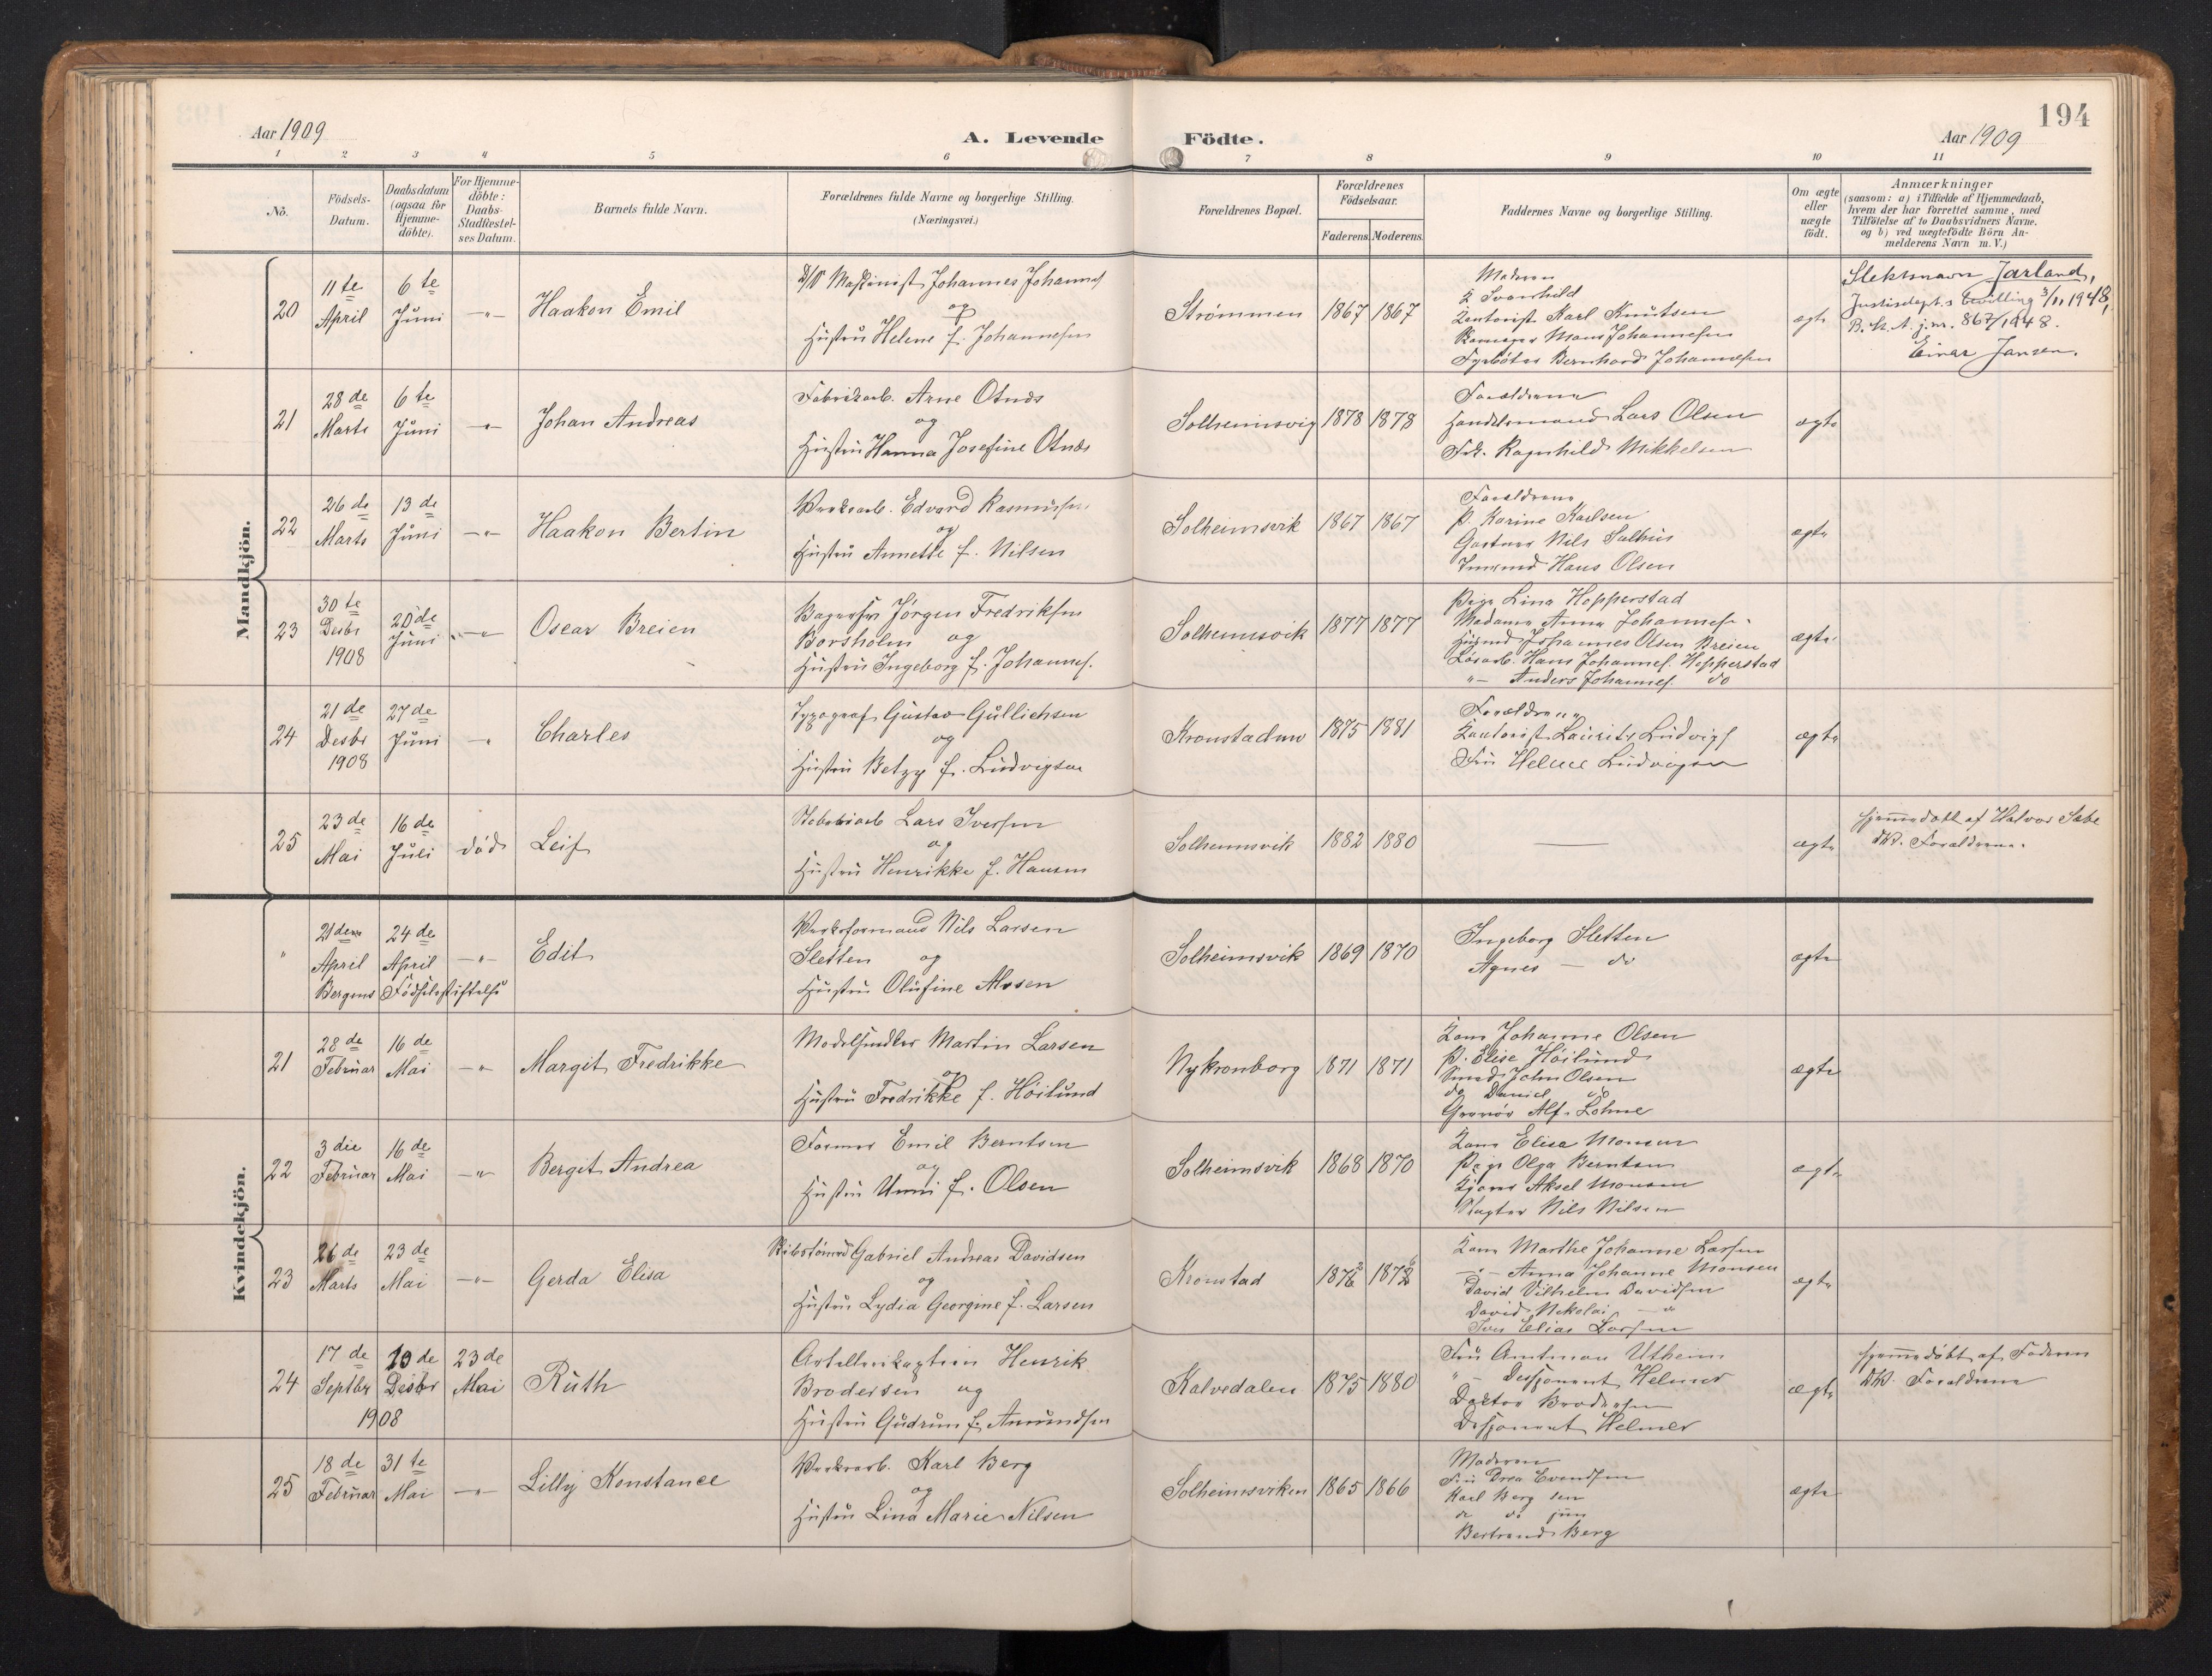 194
Aar 1909
A. Levende Födte.
Aar 1909
1 2 3 4 5 6 7 8 9 10 11
No.
Födsels-Datum.
Daabsdatum (ogsaa for Hjemme-döbte).
For Hjemme-döbte: Daabs-Stadfæstel-ses Datum.
Barnets fulde Navn.
Forældrenes fulde Navne og borgerlige Stilling. (Næringsvei.)
Forældrenes Bopæl.
Forældrenes Födselsaar.
Faderens. Moderens.
Faddernes Navne og borgerlige Stilling.
Om ægte eller uægte födt.
Anmærkninger
(saasom: a) i Tilfælde af Hjemmedaab,
hvem der har forrettet samme, med
Tilföielse af to Daabsvidners Navne.
og b) ved uægtefödte Börn An-
melderens Navn m. V.)
Mandkjön.
20
11 te April
6 te Juni
-"-
Haakon Emil
D/S Maskinist Johannes Johannes
og
Hustru Helene f. Johannesen
Strømmen
1867 1867
Moderen
Svanhild
Kontorist Karl Knutsen
Mons Johannesen
Fyrbøter Bernhard Johannesen
ægte
Slektsnavn Jarland,
Justisdept.s bevilling 3/11 1948,
B. st. A. j.nr. 867/1948.
Einar Jansen.
21
28 de Marts
6 te Juni
-"-
Johan Andreas
Fabrikarb. Arne Otnes
og
Hustru Hanna Josefine Otnes
Solheimsvig
1878 1878
Forældrene
Handelsmand Lars Olsen
Frk. Ragnhild Mikkelsen
ægte
22
26 de Marts
13 de Juni
-"-
Haakon Bertin
Værksarb. Edvard Rasmusen
og
Hustru Annette f. Nilsen
Solheimsvik
1867 1867
Forældrene
P. Karine Karlsen
Gartner Nils Salhus
Hans Olsen
ægte
23
30 te Desbr 1908
20 de Juni
-"-
Oscar Breien
Bagersv Jørgen Fredriksen
Borsholm og
Hustru Ingeborg f. Johannes.
Solheimsvik
1877 1877
Pige Lina Hopperstad
Madame Anna Johannes.
Husmd Johannes Olsen Breien
Løsarb. Hans Johannes. Hopperstad
"- Anders Johannes. do
ægte
24
21 de Desbr 1908
27 de Juni
-"
Charles
Typograf Gustav Gullichsen
og
Hustru Betzy f. Ludvigsen
Kronstadnv
1875 1881
Forældrene
Kontorist Laurits Ludvigs
Fru Helene Ludvigsen
ægte
25
23 de Mai
16 de Juli
død
Leif
Lars Iversen
og
Hustru Henrikke f. Hansen
Solheimsvik
1882 1880
—
ægte
Hjemmedøbt af Halvor Sæbø
DV. Forældrene.
Kvindekjön.
"
21 den April
24 de April
-"-
Bergens Fødselsstiftelse
Edit
Værksformand Nils Larsen
Sletten og
Hustru Olufine Alvsen
Solheimsvik
1869 1870
Ingeborg Sletten
Agnes — do
ægte
21
28 de Februar
16 de Mai
-"-
Margit Fredrikke
Modelsnedker Martin Larsen
og
Hustru Fredrikke f. Höilund
Nykronborg
1871 1871
Kone Johanne Olsen
P. Elise Höilund
Smed John Olsen
do Daniel do
Gravør Alf. Lohne
ægte
22
3 die Februar
16 de Mai
-"-
Bergit Andrea
Former Emil Berntsen
og
Hustru Unni f. Olsen
Solheimsvik
1868 1870
Kone Elisa Monsen
Pige Olga Berntsen
Aksel Monsen
Slagter Nils Nilsen
ægte
23
26 de Marts
23 de Mai
-"-
Gerda Elisa
Gabriel Andreas Davidsen
og
Hustru Lydia Georgine f. Larsen
Kronstad
1872 1876
Kone Marthe Johanne Larsen
-"- Anna Johanne Monsen
David Vilhelm Davidsen
David Nikolai — "
Iver Elias Larsen
ægte
24
17 de Septbr
10 de Desbr
1908
23 de Mai
Ruth
Artillerikaptein Henrik
Brodersen og
Hustru Gudrun f. Amundsen
Kalvedalen
1875 1880
Fru Amtman Utheim
" - Disponent Helmer
Doktor Brodersen
Disponent Helmer
ægte
Hjemmedøbt af Faderen
DV. Forældrene
25
18 de Februar
31 te Mai
-"-
Lilly Konstance
Værksarb. Karl Berg
og
Hustru Lina Marie Nilsen
Solheimsviken
1865 1866
Moderen
Fru Drea Evensen
Karl Berg sen
do do jun
Bertrand Berg
ægte